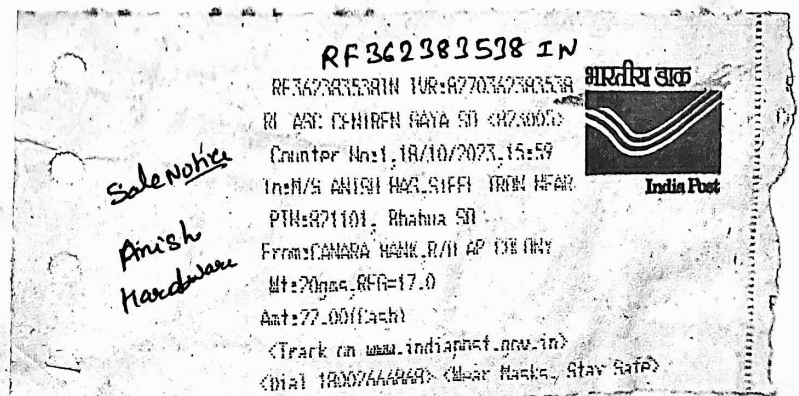 RF362383538 IN
भारतीय डाक
RF362383538IN IVR:8270362383538
RL ASC GAYA SO <823005>
Counter No:1,18/10/2023,15:59
To:M/S ANISH STEEL IRON NEAR
PIN:821101, Bhabua SO
From:CANARA BANK,R/O AP COLONY
Wt:20gms,REG=17.0
Amt:22.00(Cash)
<Track on www.indiapost.gov.in>
<Dial 18002666868> <Wear Masks, Stay Safe>
India Post
Sale Notice
Anish
Hardware